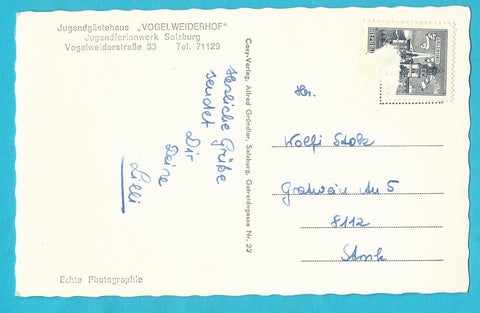 Jugendgästehaus „VOGELWEIDERHOF"
Jugendferienwerk Salzburg
Vogelweiderstraße 33 Tel. 71129
Herzliche Grüße
sendet Dir
Deine
Lilli
Echte Photographie
Cosy-Verlag, Alfred Gründler, Salzburg, Getreidegasse Nr. 22
Hr.
Wolfi Stolz
Gratwein Au 5
8112
Stmk